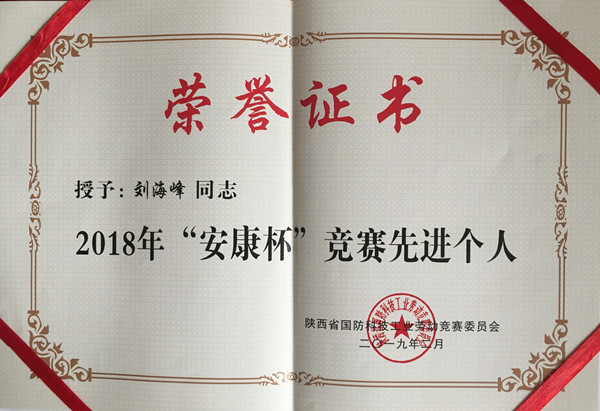 荣誉证书
授予：刘海峰 同志
2018年“安康杯”竞赛先进个人
陕西省国防科技工业劳动竞赛委员会
二〇一九年二月